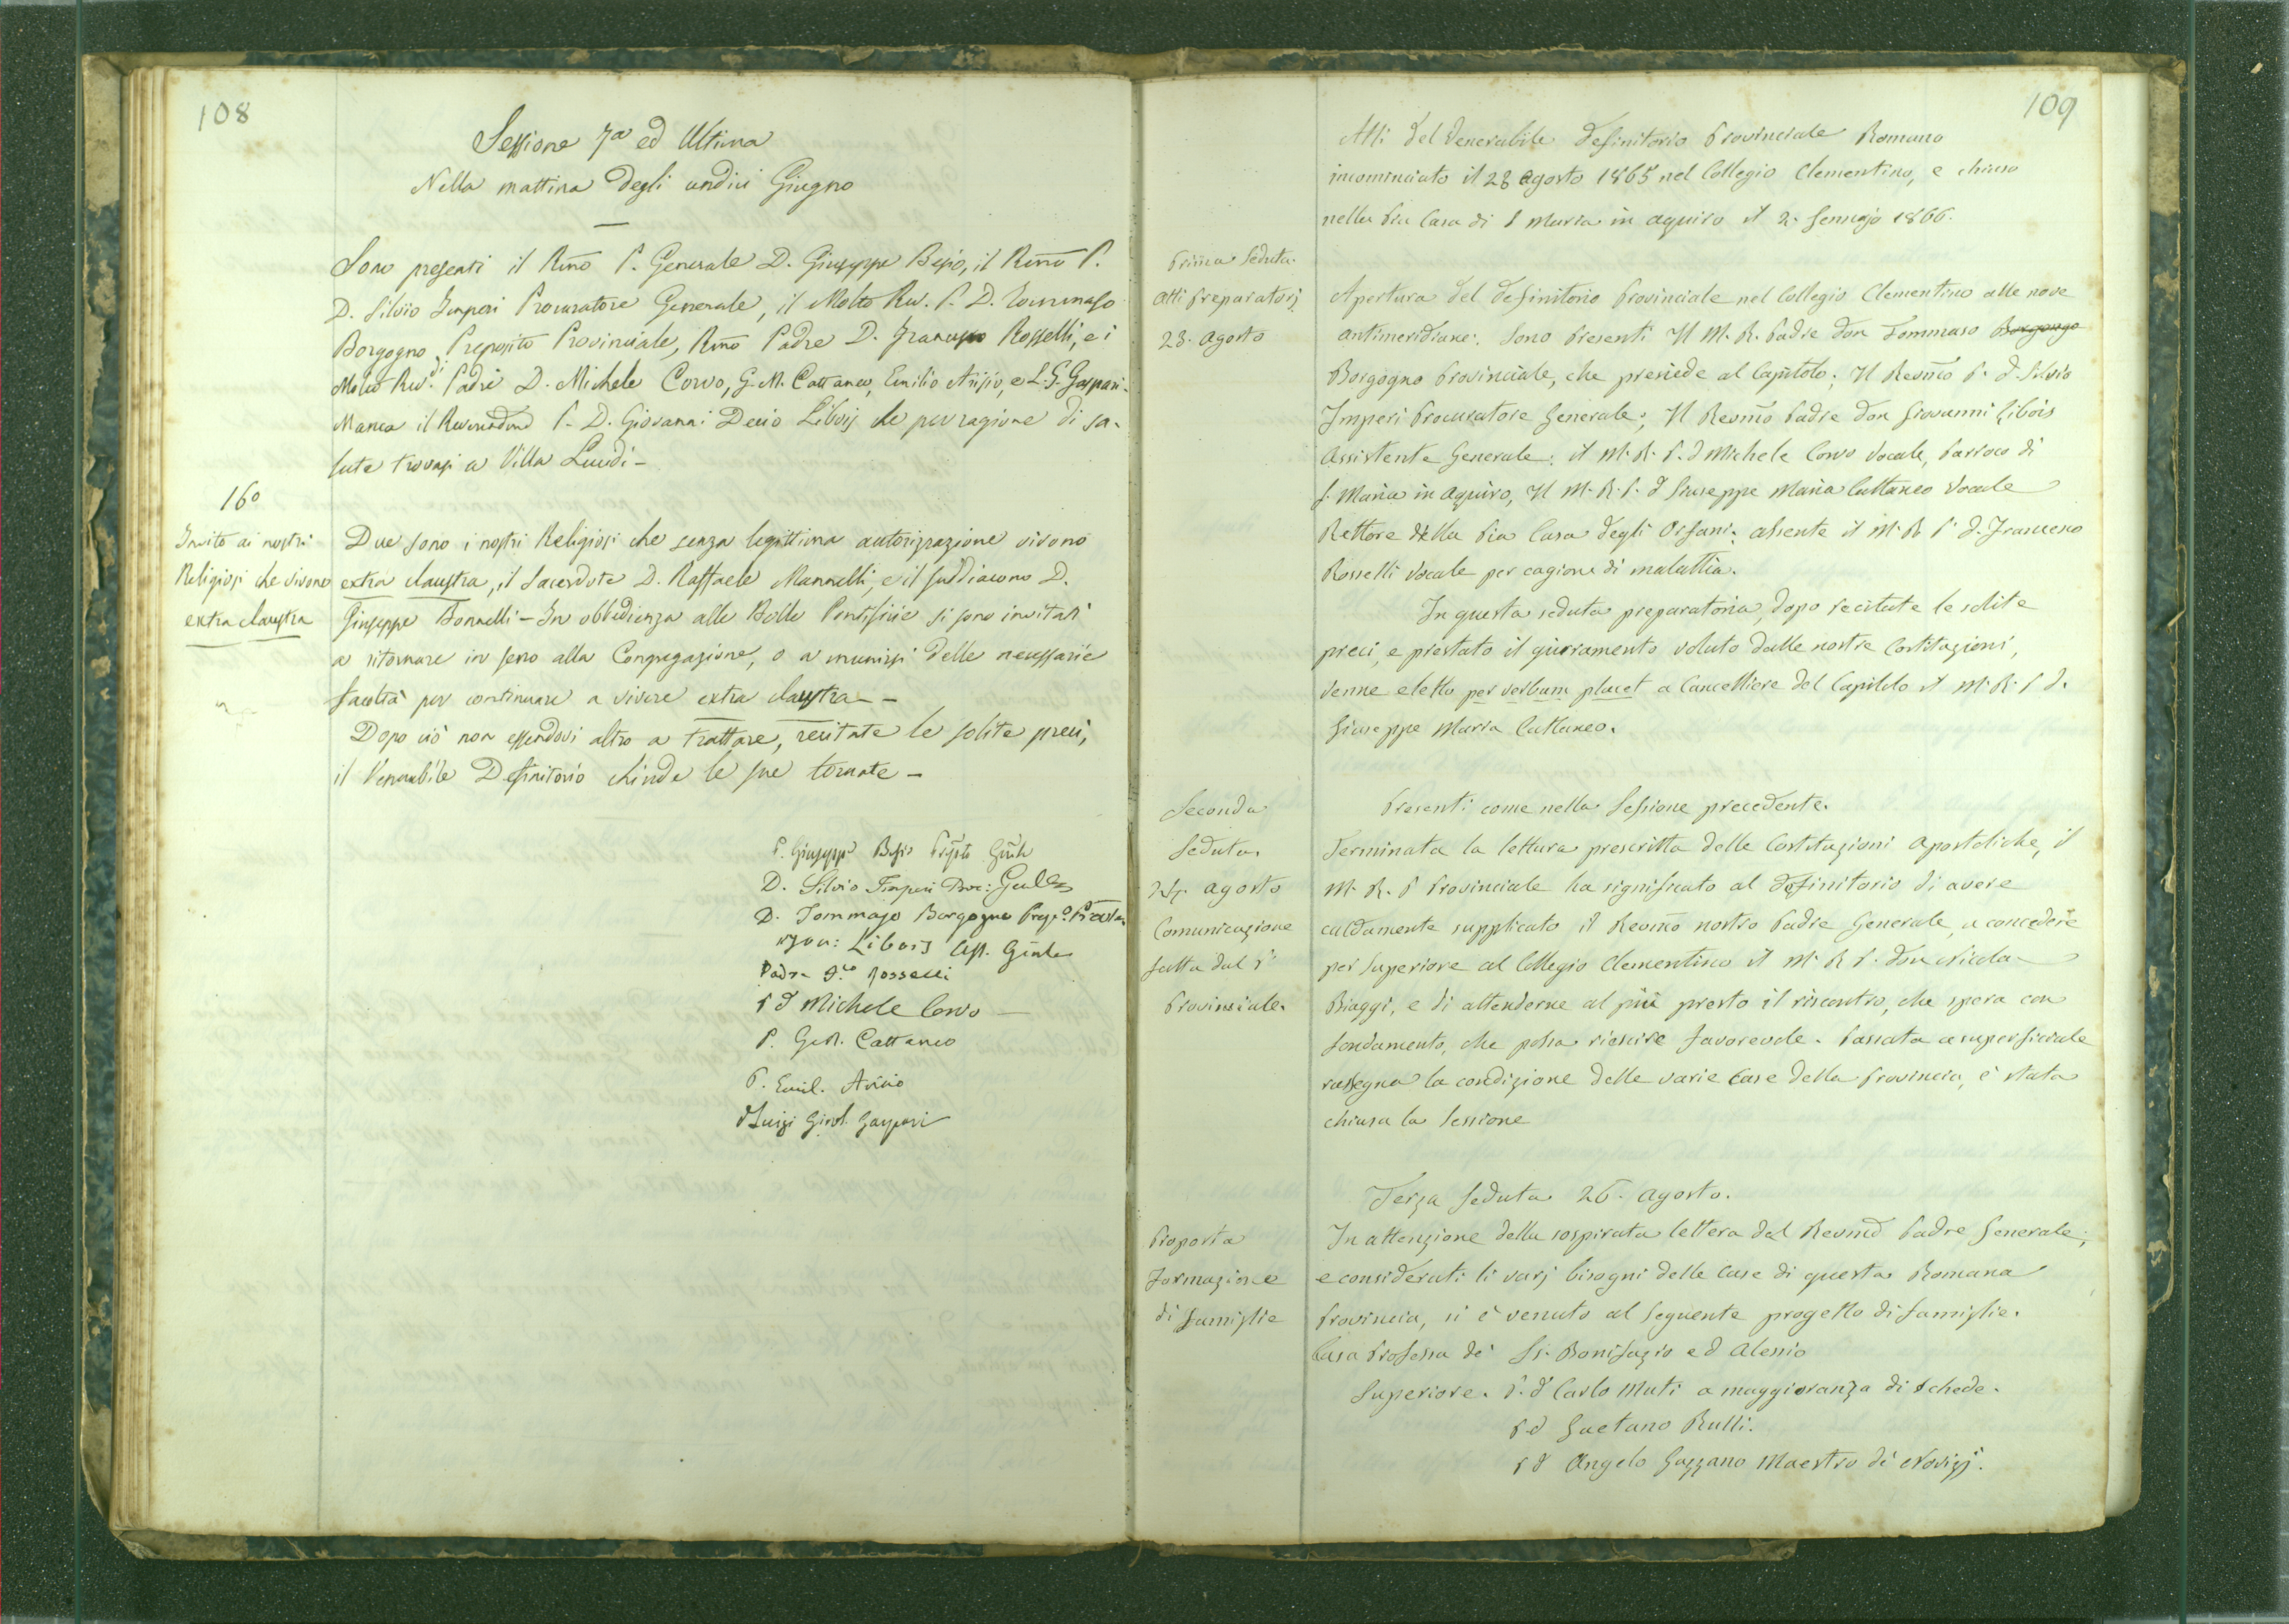 108
Sessione 7a ed Ultima
Nella mattina degli undici Giugno
Sono presenti il Rmo P. Generale D. Giuseppe Besio, il Rmo P.
D. Silvio Imperi Procuratore Generale, il Molto Rev. P. D. Tommaso
Borgogno Preposito Provinciale, Rmo Padre D. Francesco Rosselli, e i
Molto Rev.di Padri D. Michele Corvo, G. M. Cattaneo, Emilio Arisio, e L. G. Gaspari.
Manca il Reverendmo P. D. Giovanni Decio Libois che per ragione di sa-
lute trovasi a Villa Lucidi -
16o
Invito ai nostri
Religiosi che vivono
extra claustra
Due sono i nostri Religiosi che senza legittima autorizzazione vivono
extra claustra, il Sacerdote D. Raffaele Mannelli, e il suddiacono D.
Giuseppe Bonnelli - In obbedienza alle Bolle Pontificie si sono invitati
a ritornare in seno alla Congregazione, o a munirsi delle necessarie
facoltà per continuare a vivere extra claustra -
Dopo ciò non essendovi altro a trattare, recitate le solite preci,
il Venerabile Definitorio chiude le sue tornate -
P. Giuseppe Besio Prepto Gnle
D. Silvio Imperi Proc: Gen.le
D. Tommaso Borgogno Prep.o Prov.le
Libois Ass. Gnle
Padre Rosselli
P D Michele Corvo
P. G. M. Cattaneo
P. Emil. Arisio
D Luigi Girol. Gaspari
109
Atti del Venerabile Definitorio Provinciale Romano
incominciato il 23 agosto 1865 nel Collegio Clementino, e chiuso
nella Pia Casa di S Maria in aquiro il 2. Gennajo 1866.
Prima Seduta.
Atti Preparatorj
23. agosto
Apertura del Definitorio Provinciale nel Collegio Clementino alle nove
antimeridiane: sono Presenti Il M. R. Padre Don Tommaso Borgongo
Borgogno Provinciale, che presiede al Capitolo; Il Revmo P. D. Silvio
Imperi Procuratore Generale; Il Revmo Padre Don Giovanni Libois
Assistente Generale: il M. R. P. D Michele Corvo Vocale, Parroco di
S. Maria in Aquiro, Il M. R. P. D Giuseppe Maria Cattaneo Vocale
Rettore della Pia Casa degli Orfani; assente il M. R P. D. Francesco
Rosselli Vocale per cagione di malattia.
In questa seduta preparatoria, dopo recitate le solite
preci, e prestato il giuramento voluto dalle nostre Costituzioni,
venne eletto per verbum placet a Cancelliere del Capitolo il M. R. P D.
Giuseppe Maria Cattaneo.
Seconda
Seduta.
24. agosto
Comunicazione
fatta dal P.
Provinciale.
Presenti come nella Sessione precedente.
Terminata la lettura prescritta delle Costituzioni Apostoliche, il
M. R. P Provinciale ha significato al Definitorio di avere
caldamente supplicato il Revmo nostro Padre Generale, a concedere
per Superiore al Collegio Clementino il M. R P. Don Nicola
Biaggi, e di attenderne al più presto il riscontro, che spera con
fondamento, che possa riescire favorevole. Passata a superficiale
rassegna la condizione delle varie Case della Provincia, è stata
chiusa la Sessione
Terza Seduta 26. agosto.
Proposta
Formazione
di Famiglie
In attenzione della sospirata lettera del Revmo Padre Generale,
e considerati li varj bisogni delle Case di questa Romana
Provincia, si è venuto al seguente progetto di famiglie.
Casa Professa de' SS. Bonifazio ed Alessio
Superiore. P. D Carlo Muti a maggioranza di schede.
P D Gaetano Rulli.
P D Angelo Gazzano Maestro de' Novizj.